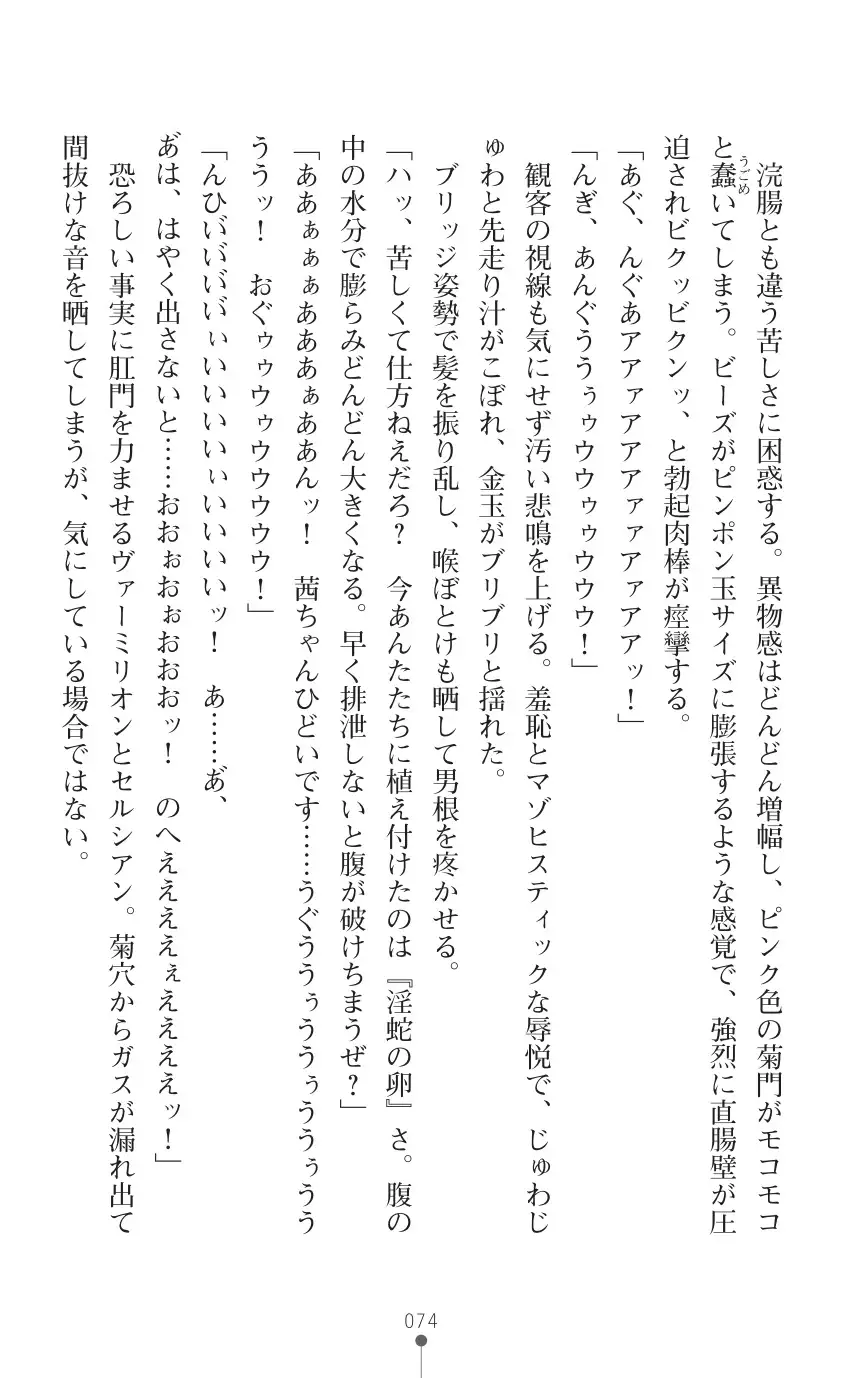 浣腸とも違う苦しさに困惑する。異物感はどんどん増幅し、ピンク色の菊門がモコモコ
と蠢いてしまう。ビーズがピンポン玉サイズに膨張するような感覚で、強烈に直腸壁が圧
うごめ
迫されビクッビクンッ、と勃起肉棒が痙攣する。
「あぐ、んぐあアアァアアアァァアァアアッ！」
「んぎ、あんぐううぅゥウウゥゥウウウ！」
観客の視線も気にせず汚い悲鳴を上げる。羞恥とマゾヒスティックな辱悦で、じゅわじ
ゅわと先走り汁がこぼれ、金玉がブリブリと揺れた。
ブリッジ姿勢で髪を振り乱し、喉ぼとけも晒して男根を疼かせる。
「ハッ、苦しくて仕方ねえだろ？　今あんたたちに植え付けたのは『淫蛇の卵』さ。腹の
中の水分で膨らみどんどん大きくなる。早く排泄しないと腹が破けちまうぜ？」
「ああぁぁぁあああぁああんッ！　茜ちゃんひどいです……うぐううぅううぅううぅうう
ううッ！　おぐゥゥウゥウウウウウ！」
「んひい゙い゙い゙い゙ぃいいいいいぃいいいいいッ！　あ……あ゙、
あ゙は、はやく出さないと……おおぉおぉおおおッ！　のへええええぇええええッ！」
恐ろしい事実に肛門を力ませるヴァーミリオンとセルシアン。菊穴からガスが漏れ出て
間抜けな音を晒してしまうが、気にしている場合ではない。
074